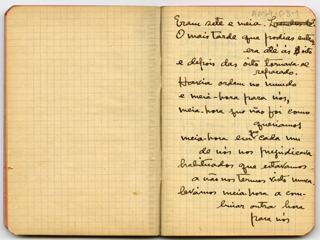 Eram sete e meia.
O mais tarde que podias
era até às 8 oito
e depois das oito tornava-se
reparado.
Havia ordem no mundo
e meia-hora para nós,
meia-hora que não foi como
queríamos
meia-hora em cada um
de nós nos prejudicava
habituados que estávamos
a não nos termos visto nunca.
levámos meia-hora a com-
binar outra hora
para nós